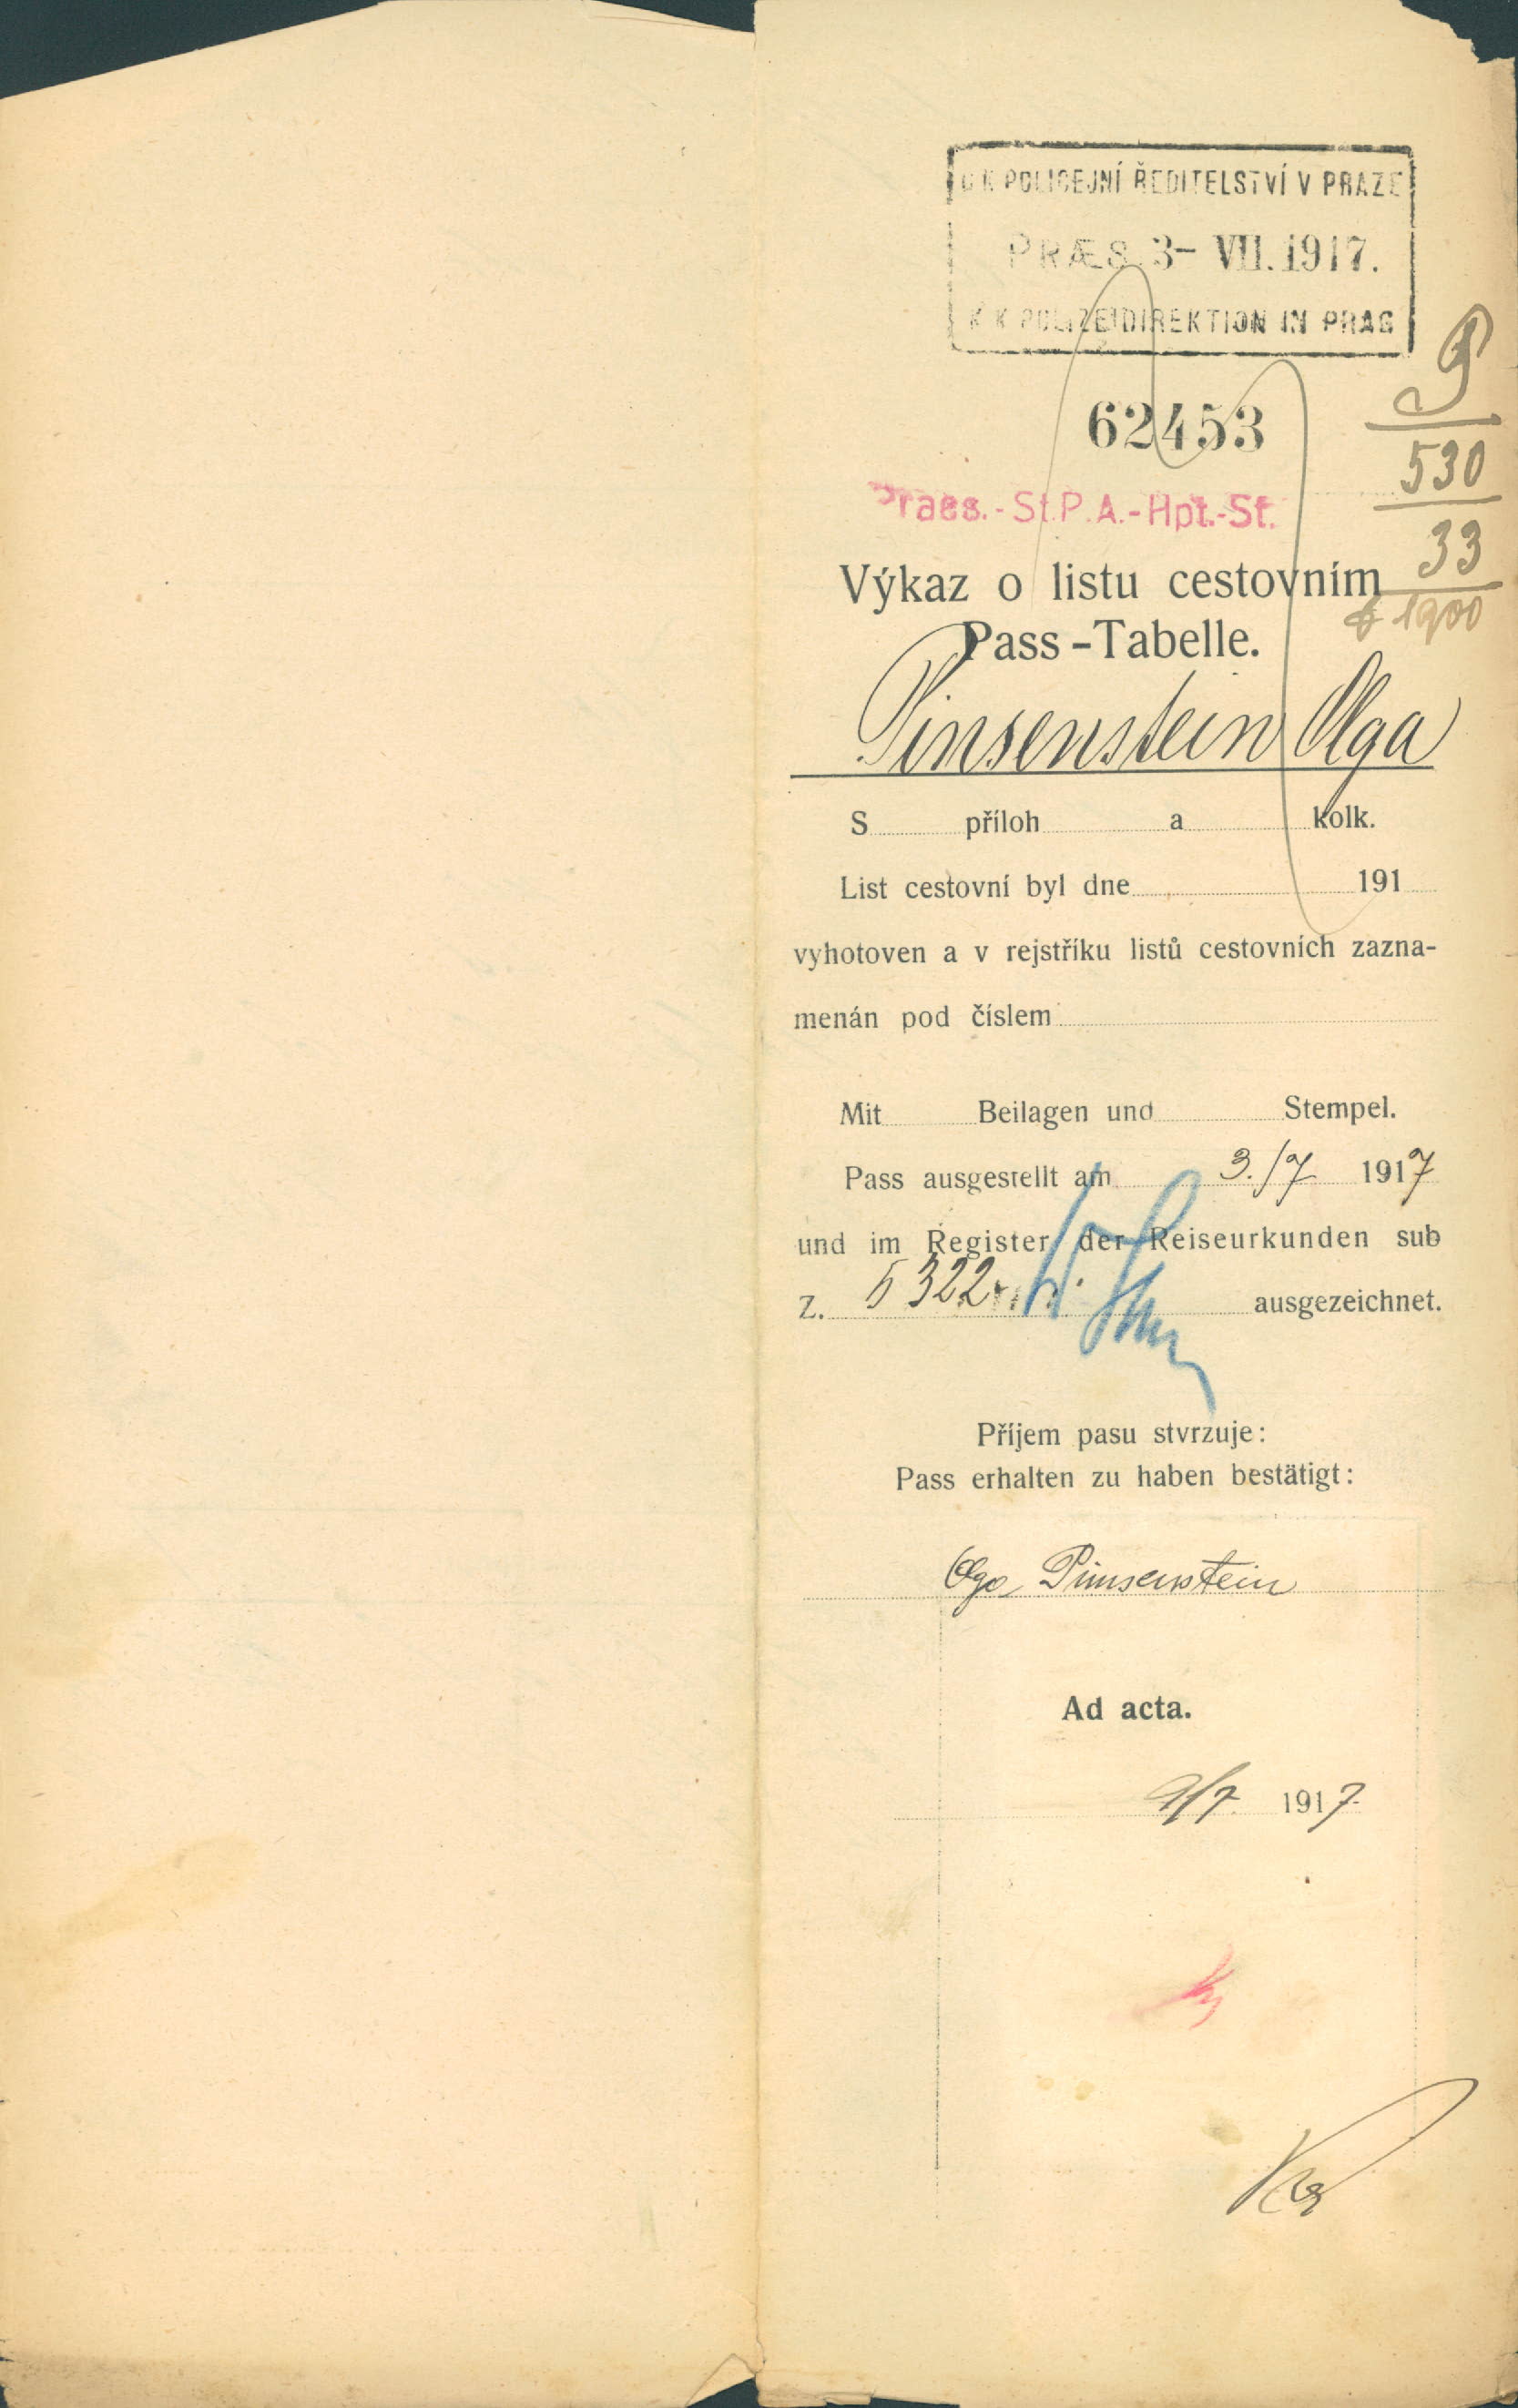 C. K. POLICEJNÍ ŘEDITELSTVÍ V PRAZE
PRÆS. 3- VII. 1917.
K. K. POLIZEIDIREKTION IN PRAG
P
530
33
1900
62453
Praes.-St.P.A.-Hpt.-St.
Výkaz o listu cestovním
Pass-Tabelle.
Pinsenstein Olga
S příloh a kolk.
List cestovní byl dne 191
vyhotoven a v rejstříku listů cestovních zazna-
menán pod číslem
Mit Beilagen und Stempel.
Pass ausgestellt am 3./7 1917
und im Register der Reiseurkunden sub
Z. 5322 ausgezeichnet.
Příjem pasu stvrzuje:
Pass erhalten zu haben bestätigt:
Olga Pinsenstein
Ad acta.
9/7 1917